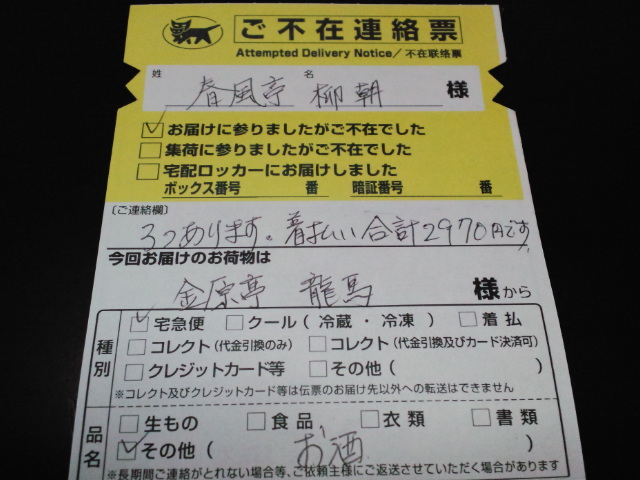 ご不在連絡票
Attempted Delivery Notice／不在联络票
姓 名
春風亭 柳朝 様
お届けに参りましたがご不在でした
集荷に参りましたがご不在でした
宅配ロッカーにお届けしました
ボックス番号 番 暗証番号 番
〔ご連絡欄〕
3つあります。着払い合計2970円です
今回お届けのお荷物は
金原亭 龍馬 様から
種別
宅急便 クール（冷蔵・冷凍） 着払
コレクト（代金引換のみ） コレクト（代金引換及びカード決済可）
クレジットカード等 その他（ ）
※コレクト及びクレジットカード等は伝票のお届け先以外への転送はできません
品名
生もの 食品 衣類 書類
その他（ お酒 ）
※長期間ご連絡がとれない場合等、ご依頼主様にご返送させていただく場合があります